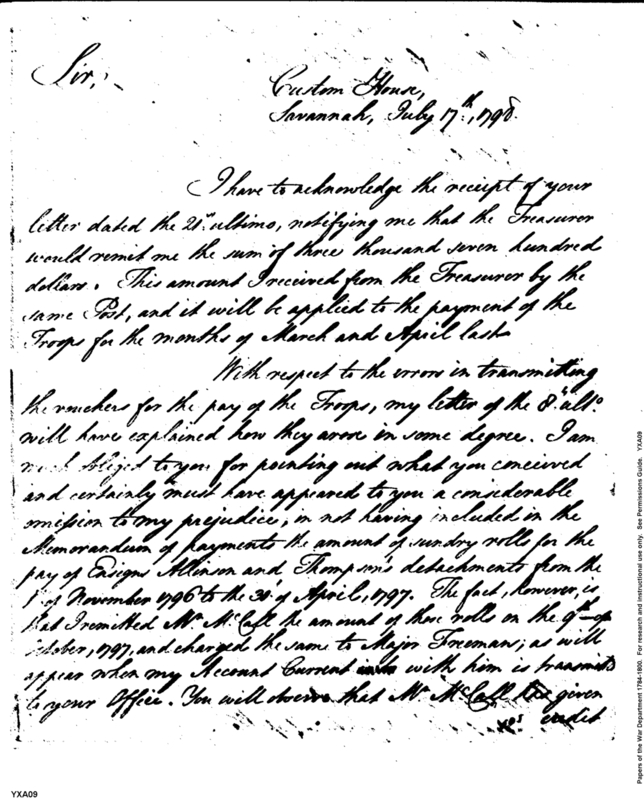 Sir,
Custom House,
Savannah, July 17th, 1798.
I have to acknowledge the receipt of your
letter dated the 21st ultimo, notifying me that the Treasurer
would remit me the sum of three thousand seven hundred
dollars. This amount I received from the Treasurer by the
same Post, and it will be applied to the payment of the
Troops for the months of March and April last.
With respect to the errors in transmitting
the vouchers for the pay of the Troops, my letter of the 8th ulto.
will have explained how they arose in some degree. I am
much obliged to you for pointing out what you conceived
and certainly must have appeared to you a considerable
omission to my prejudice, in not having included in the
Memorandum of payments the amount of sundry rolls for the
pay of Ensigns Allinson and Thompson's detachments from the
1st of November 1796 to the 30th of April, 1797. The fact, however, is
that I remitted Mr. McCall the amount of those rolls on the 9th of
October, 1797, and charged the same to Major Freemans; as will
appear when my Account Current with him is transmitd
to your Office. You will observe that Mr McCall has given
credit
YXA09
Papers of the War Department 1784-1800. For research and instructional use only. See Permissions Guide. YXA09